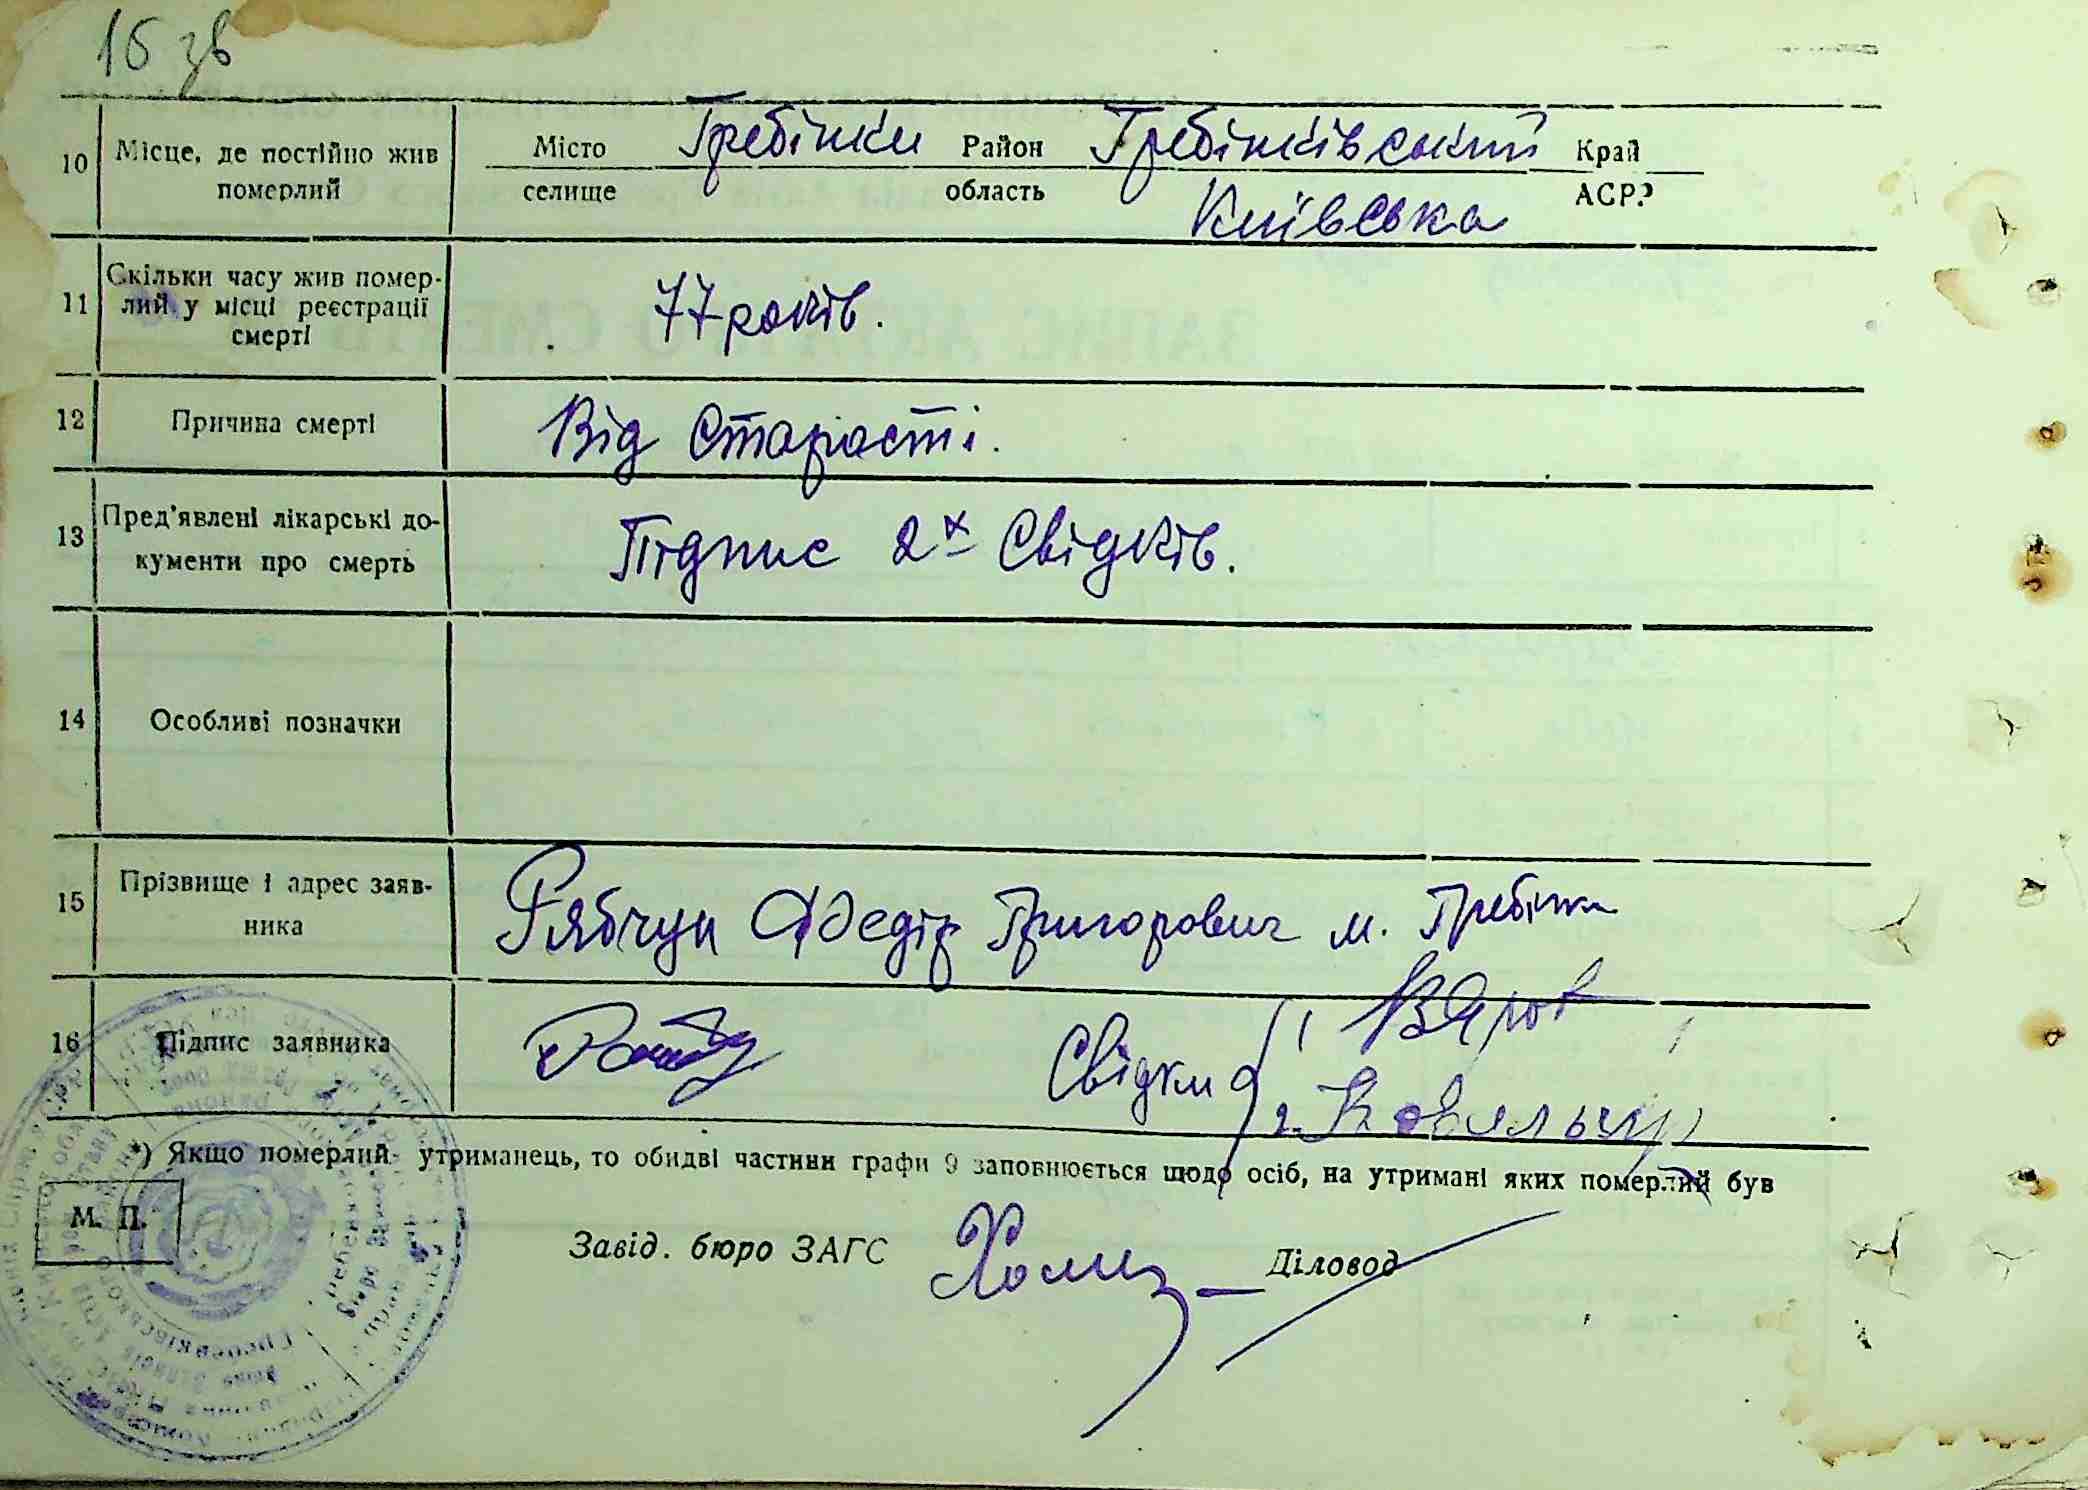 16 зв
10 Місце, де постійно жив померлий Місто Гребінки Район Гребінківський Край
селище область Київська АСРР
11 Скільки часу жив помер-
лий у місці реєстрації
смерті 77 років.
12 Причина смерті Від Старості.
13 Пред'явлені лікарські до-
кументи про смерть Підпис 2х Свідків.
14 Особливі позначки
15 Прізвище і адрес заяв-
ника Рябчун Федір Григорович м. Гребінки
16 Підпис заявника Свідки 1
2. Ковальчу
*) Якщо померлий утриманець, то обидві частини графи 9 заповнюється щодо осіб, на утримані яких померлий був
М. П.
Завід. бюро ЗАГС Діловод